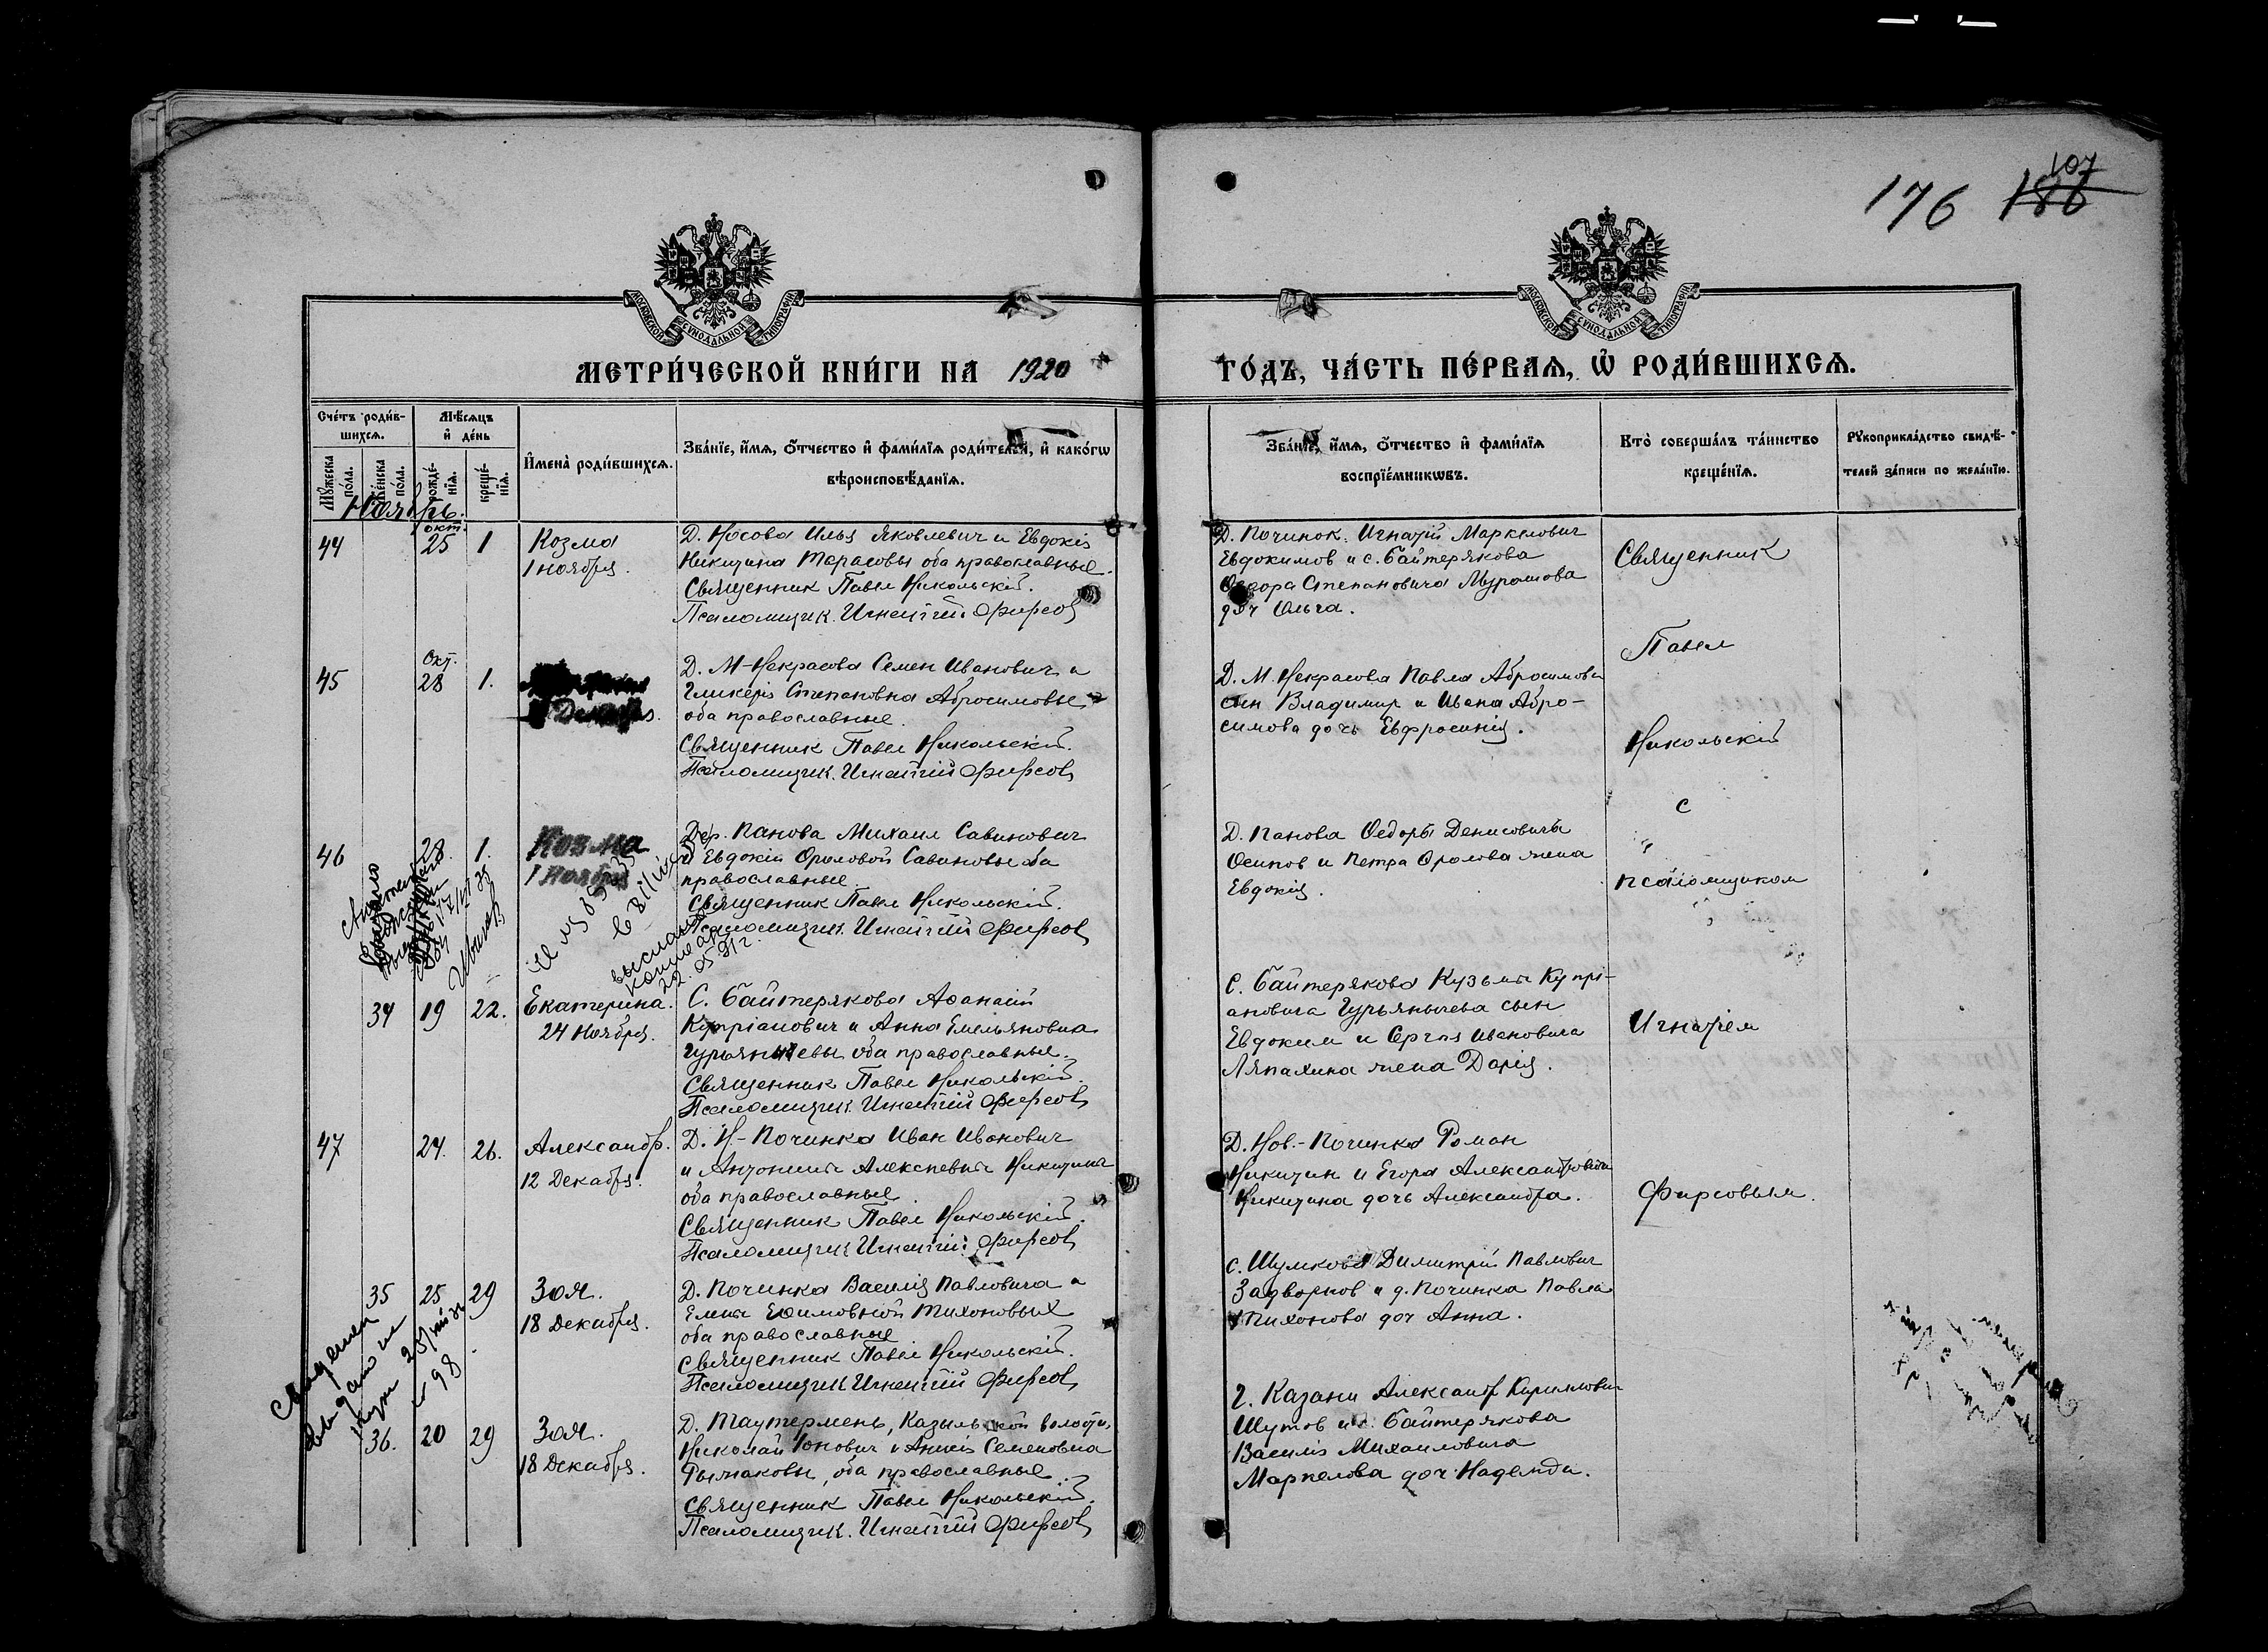 176 186 107
МОСКОВСКОЙ СѴНОДАЛЬНОЙ ТИПОГРАФІИ
МОСКОВСКОЙ СѴНОДАЛЬНОЙ ТИПОГРАФІИ
МЕТРИ́ЧЕСКОЙ КНИ́ГИ НА 1920
ГО́ДЪ, ЧА́СТЬ ПЕ́РВАѦ, Ѽ РОДИ́ВШИХСѦ.
Сче́тъ роди́в-
шихсѧ.
Мѣ́сѧцъ
и҆ де́нь
Мꙋ́жеска по́ла.
Же́нска по́ла.
рожде́-
нїѧ.
креще́-
нїѧ.
И҆мена̀ роди́вшихсѧ.
Зва́нїе, и҆́мѧ, ѻ҆́тчество и҆ фами́лїѧ роди́телей, и҆ како́гѡ
вѣроисповѣ́данїѧ.
Зва́нїе, и҆́мѧ, ѻ҆́тчество и҆ фами́лїѧ
воспрїе́мникѡвъ.
Кто̀ соверша́лъ та́инство
креще́нїѧ.
Рꙋкоприкла́дство свидѣ́-
телей за́писи по жела́нїю.
Ноябрь.
44 окт. 25 1 Козма
1 ноября.
Д. Носова Илья Яковлевич и Евдокія
Никитина Тарасовы оба православные.
Священник Павел Никольскій.
Псаломщик Игнатій Фирсов
Д. Починок Игнатій Маркелович
Евдокимов и с. Байтерякова
Ѳедора Степановича Мурашова
доч Ольга.
Священник
Павел
Никольскій
с
псаломщиком
Игнатіем
Фирсовым.
45 Окт. 28 1.
Декабря.
Д. М-Некрасова Семен Иванович и
Гликерія Степановна Абросимовы
оба православные.
Священник Павел Никольскій.
Псаломщик Игнатій Фирсов
Д. М. Некрасова Павла Абросимова
сын Владимир и Ивана Абро-
симова дочь Евфросинія.
46 28. 1. Козма
1 Ноября
Дер. Панова Михаил Савинович
и Евдокія Фроловой Савиновы оба
православные.
Священник Павел Никольскій.
Псаломщик Игнатій Фирсов
Д. Панова Ѳедоръ Денисовичъ
Осипов и Петра Фролова жена
Евдокія.
выслана
копия
22.05.91г.
34 19 22. Екатерина.
24 Ноября.
С. Байтерякова Аѳанасій
Купріанович и Анна Емельяновна
Гурьянычевы оба православные.
Священник Павел Никольскій.
Псаломщик Игнатій Фирсов
С. Байтерякова Кузьмы Купрі-
ановича Гурьянычева сын
Евдоким и Сергѣя Ивановича
Ляпахина жена Дарія.
47 24. 26. Александр.
12 Декабря.
Д. Н-Починка Иван Иванович
и Антонина Алексѣевна Никитина
оба православные.
Священник Павел Никольскій.
Псаломщик Игнатій Фирсов
Д. Нов.-Починка Роман
Никитин и Егора Александровича
Никитина дочь Александра.
35 25 29 Зоя.
18 Декабря.
Д. Починка Василія Павловича и
Елены Еѳимовной Тихоновых
оба православные
Священник Павел Никольскій.
Псаломщик Игнатій Фирсов
с. Шумкова Димитрій Павлович
Задворнов и д. Починка Павла
Тихонова доч Анна.
№ 98
36. 20 29 Зоя.
18 Декабря.
Д. Таутермень, Казыльской волости,
Николай Іонович и Анисія Семеновна
Рыжаковы, оба православные.
Священник Павел Никольскій.
Псаломщик Игнатій Фирсов
г. Казани Александр Кириллович
Шутов и с. Байтерякова
Василія Михаиловича
Маркелова доч Надежда.